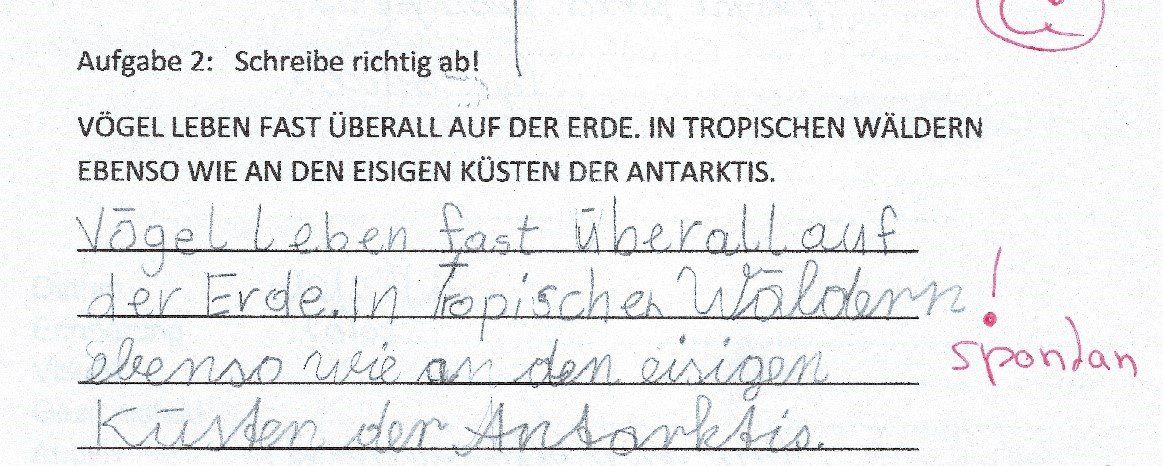 Aufgabe 2: Schreibe richtig ab!
VÖGEL LEBEN FAST ÜBERALL AUF DER ERDE. IN TROPISCHEN WÄLDERN
EBENSO WIE AN DEN EISIGEN KÜSTEN DER ANTARKTIS.
Vögel leben fast überall auf
der Erde. In Tropischen Wäldern !
ebenso wie an den eisigen spontan
Küsten der Antarktis.